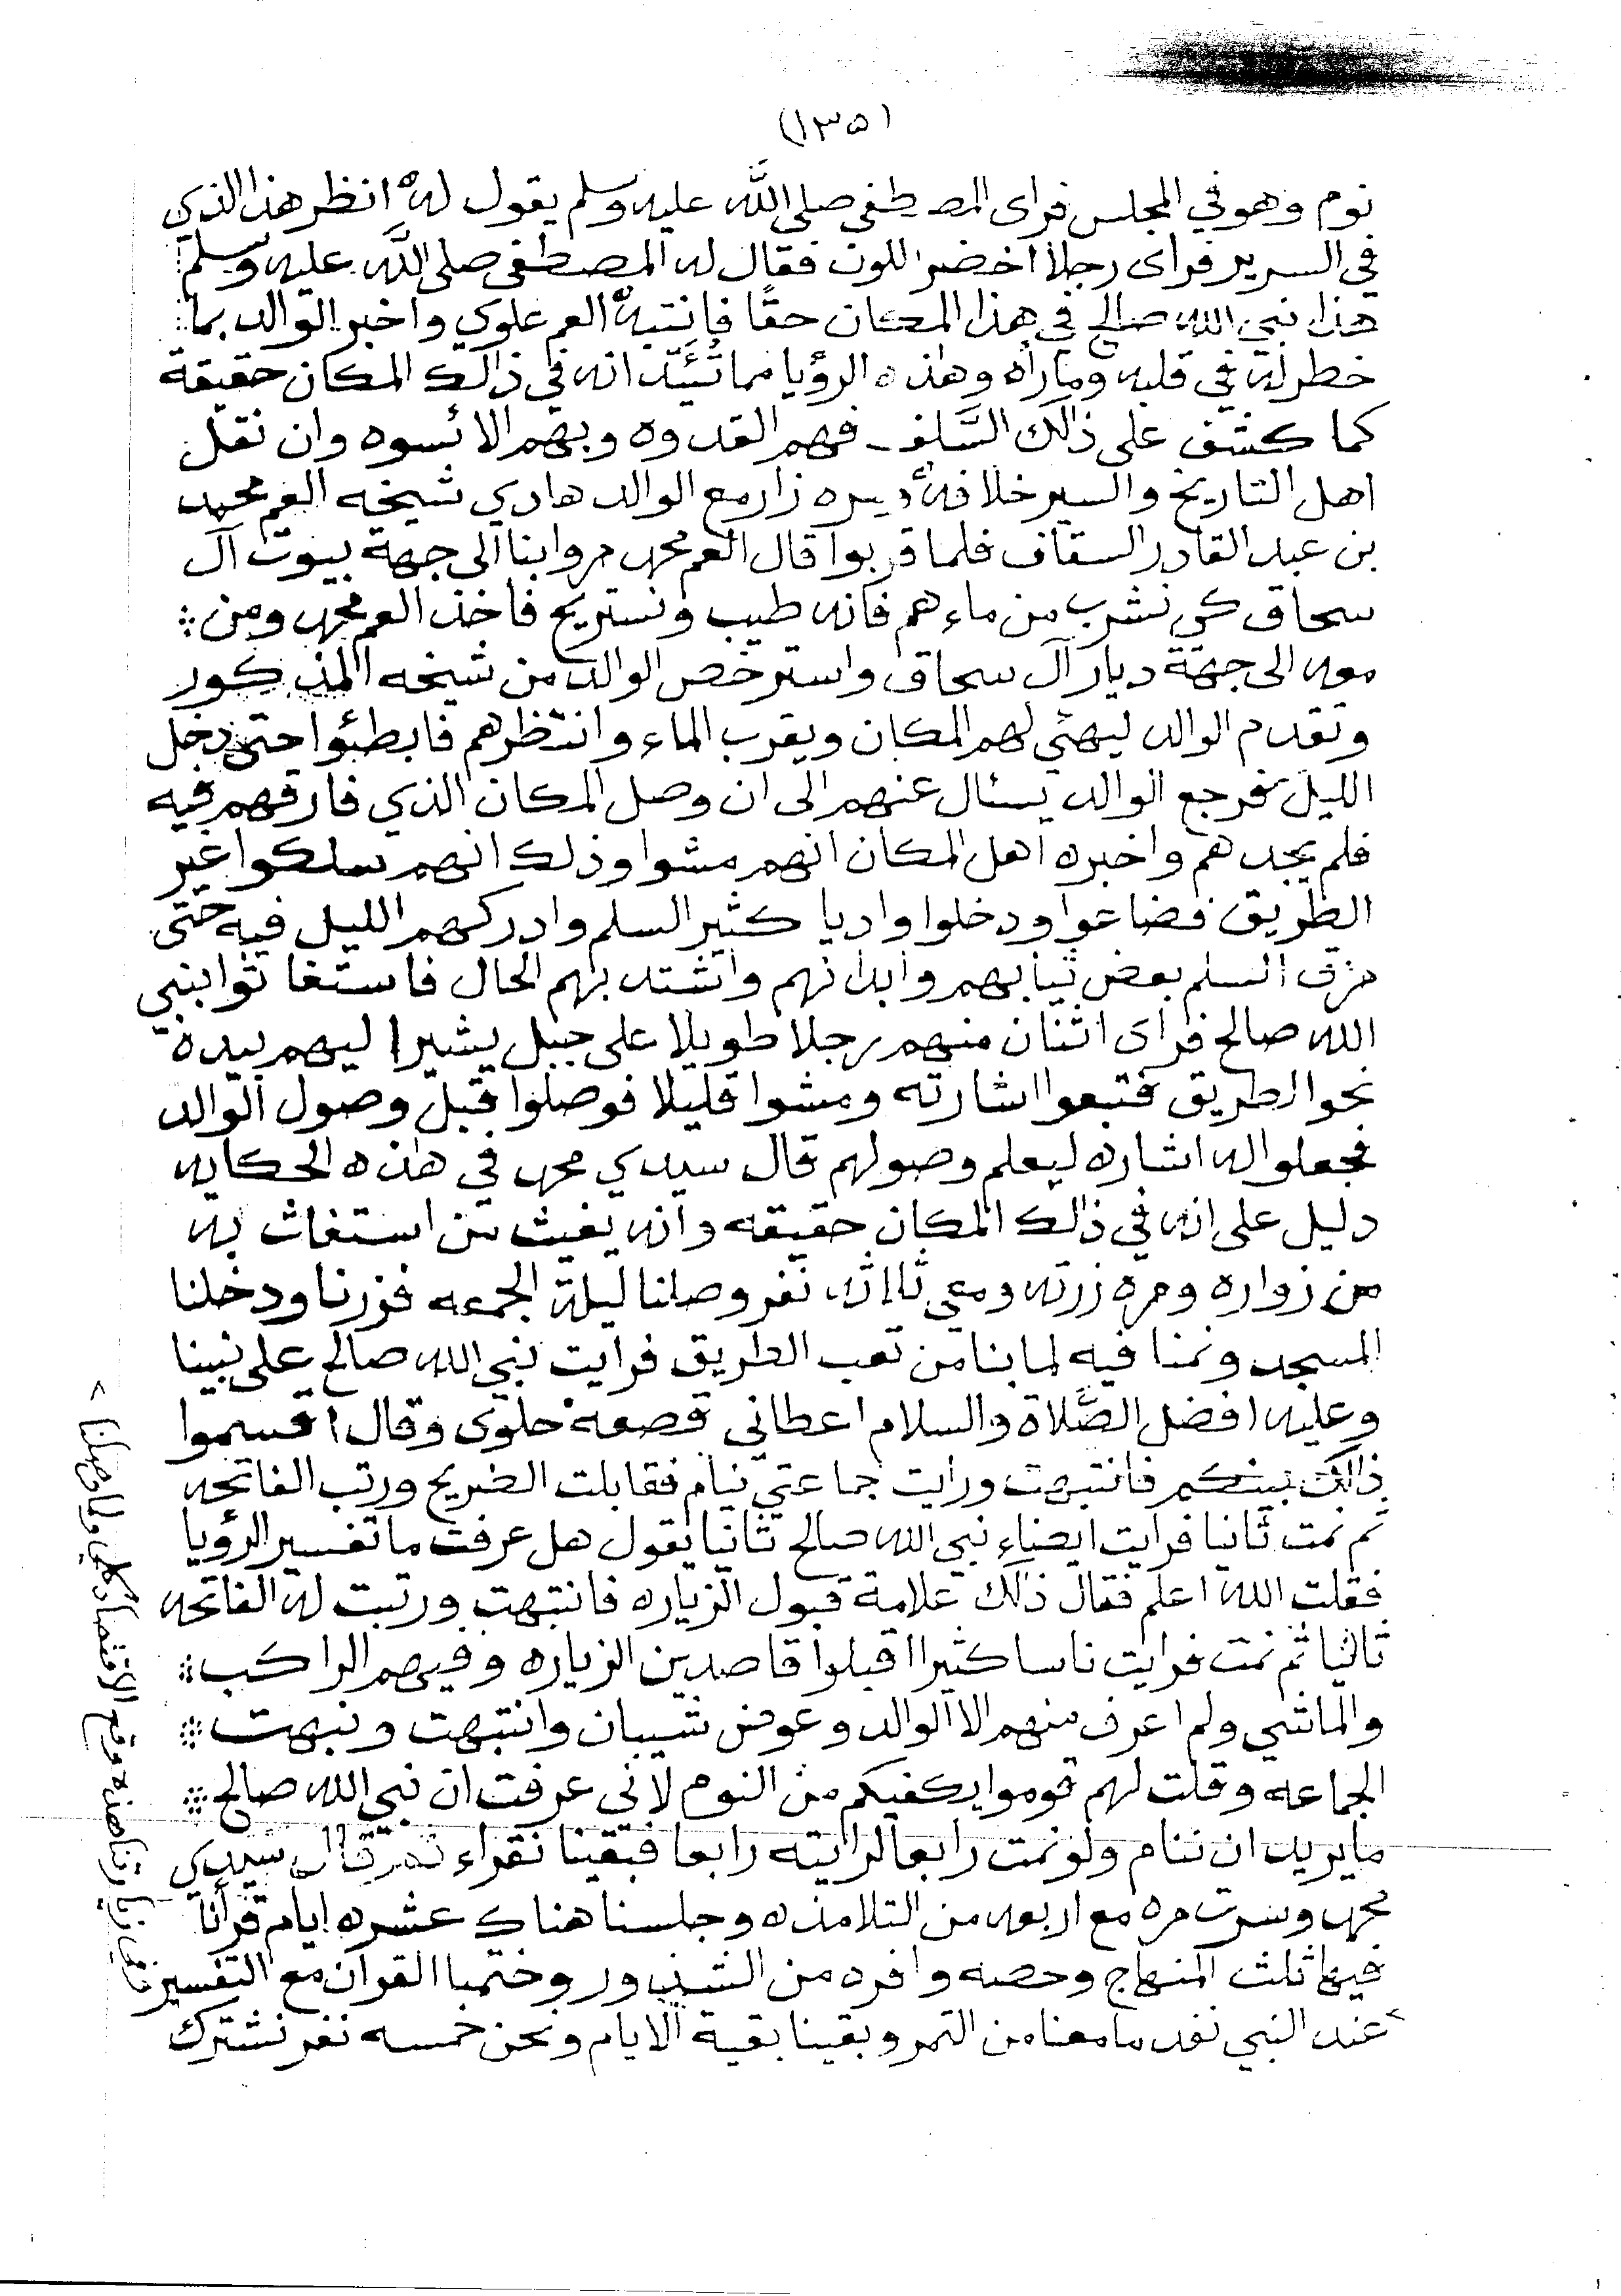 (١٣٥)
نوم وهو في المجلس فراى المصطفى صلى الله عليه وسلم يقول له انظر هذا الذي
في السرير فراى رجلا اخضر اللون فقال له المصطفى صلى الله عليه وسلم
هذا نبي الله صالح في هذا المكان حقًا فانتبه العم علوي واخبر الوالد بما
خطر له في قلبه وما راه وهاذه الرؤيا مما تُئَيّد انه في ذالك المكان حقيقة
كما كشف على ذالك السَّلف فهم القدوه وبهم الائسوه وان نقل
اهل التاريخ والسير خلافه ومره زار مع الوالد هادي شيخه العم محمد
بن عبد القادر السقاف فلما قربوا قال العم محمد مروا بنا الى جهة بيوت آل
سحاق كي نشرب من ماءهم فانه طيب ونستريح فاخذ العم محمد ومن
معه الى جهة ديار آل سحاق واسترخص الوالد من شيخه المذكور
وتقدم الوالد ليهئي لهم المكان ويقرب الماء وانتظرهم فابطئوا حتى دخل
الليل فرجع الوالد يسئال عنهم الى ان وصل المكان الذي فارقهم فيه
فلم يجدهم واخبره اهل المكان انهم مشوا وذلك انهم سلكوا غير
الطريق فضاعوا ودخلوا واديا كثير السلم وادركهم الليل فيه حتى
مزق السلم بعض ثيابهم وابدانهم واشتد بهم الحال فاستغاثوا بنبي
الله صالح فراى اثنان منهم رجلا طويلا على جبل يشير اليهم بيده
نحو الطريق فتبعوا اشارته ومشوا قليلا فوصلوا قبل وصول الوالد
فجعلوا له اشاره ليعلم وصولهم قال سيدي محمد في هاذه الحكايه
دليل على انه في ذالك المكان حقيقه وانه يغيث من استغاث به
من زواره ومره زرته ومعي ثلاثه نفر وصلنا ليلة الجمعه فزرنا ودخلنا
المسجد ونمنا فيه لما بنا من تعب الطريق فرايت نبي الله صالح على نبينا
وعليه افضل الصَّلاة والسلام اعطاني قصعة حلوى وقال اقسموا
ذالك بينكم فانتبهت ورايت جماعتي نيام فقابلت الضريح ورتب الفاتحه
ثم نمت ثانيا فرايت ايضاء نبي الله صالح ثانيا يقول هل عرفت ما تفسير الرؤيا
فقلت الله اعلم فقال ذلك علامة قبول الزياره فانتبهت ورتبت له الفاتحه
ثالثيا ثم نمت فرايت ناسا كثيرا اقبلوا قاصدين الزياره وفيهم الراكب
والماشي ولم اعرف منهم الا الوالد وعوض شيبان وانتبهت ونبهت
الجماعه وقلت لهم قوموا يكفيكم من النوم لاني عرفت ان نبي الله صالح
ما يريد ان ننام ولو نمت رابعا لرايته رابعا فبقينا نقراء ثم قال سيدي
محمد وسرت مره مع اربعه من التلامذه وجلسنا هناك عشره ايام قرأنا
فيها ثلث المنهاج وحصه وافره من الشذور وختمنا القرآن مع التفسير
عند النبي نفد ما معنا من التمر وبقينا بقية الايام ونحن خمسه نفر نشترك
ولما وصلنا